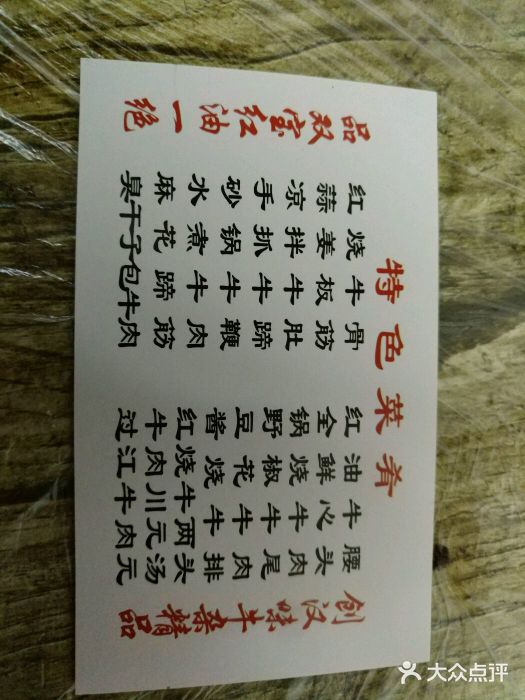 特色菜肴
品双宝红油一绝
红烧牛骨
蒜姜板筋
凉拌牛肚
手抓牛蹄
砂锅牛鞭
水煮牛肉
麻花蹄筋
臭干子包牛肉
红油牛腰
全鲜心头
锅烧牛肉
野椒牛尾
豆花牛肉
酱烧牛排
红烧牛两头
牛肉川元汤
过江牛肉元
创汉味牛杂精品
大众点评